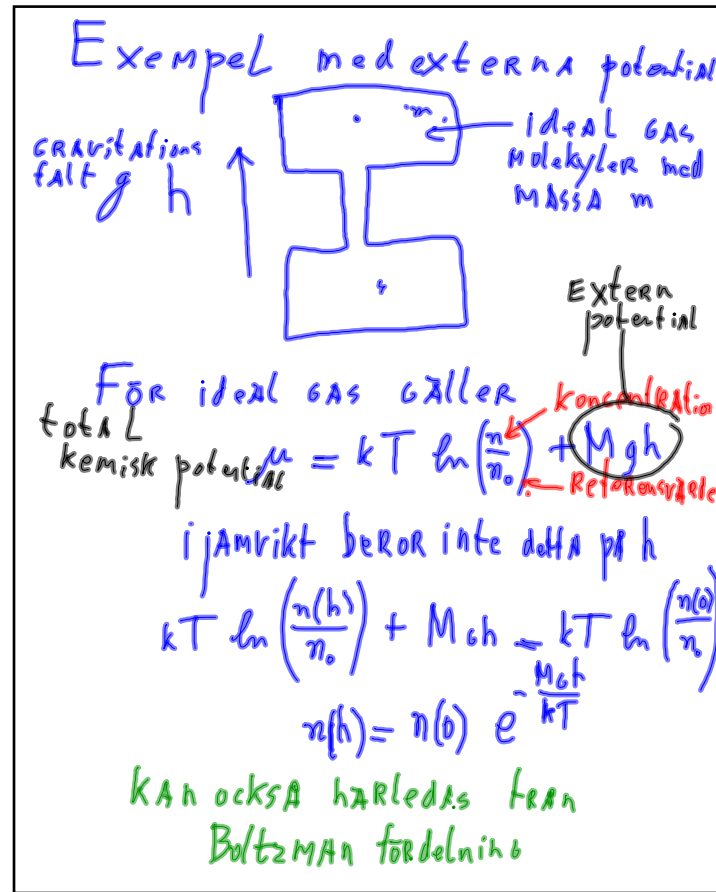 Exempel med externa potential
GRAVitAtions
fält g h
m
ideAL GAS
MOLEKYLER med
MASSA m
Extern
potential
FÖR ideAL GAS GÄLLER
totAL
kemisk potential
koncentRAtion
μ = kT ln(n/n₀) + Mgh
ReferensväRde
i jÄMvikt beROR inte dettA på h
kT ln(n(h)/n₀) + Mgh = kT ln(n(0)/n₀)
n(h) = n(0) e^(-Mgh/kT)
KAn ocksÅ hÄRLedAs fRÅn
BoltzMAn föRdelning